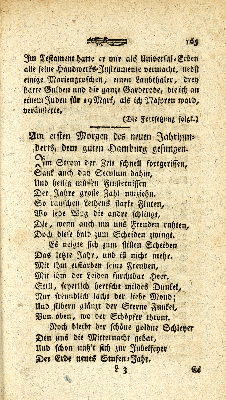 165
Im Testament hatte er mir als Universal-Erben
alle seine Handwerks-Instrumente vermacht, nebst
einige Mariengroschen, einen Laubthaler, drey
harte Gulden und die ganze Garderobe, die ich an
einem Juden für 15 Mark, als ich Masoren ward,
veräußerte.
(Die Fortsetzung folgt.)
Am ersten Morgen des neuen Jahrhun-
derts, dem guten Hamburg gesungen.
Im Strom der Zeit schnell fortgerissen,
Sank auch das Seculum dahin,
Und heilig müssen Finsternissen
Der Jahre große Zahl umziehn.
So rauschen Lethens starke Fluten,
Wo jede Wog die andre schlingt,
Die, wenn auch wir uns Freuden ruhten,
Doch diese bald zum Scheiden zwingt.
Es neigte sich zum stillen Scheiden
Das letzte Jahr, und ist nicht mehr.
Mit ihm erstarben seine Freuden,
Mit ihm der Leiden furchtbar Heer.
Still, feyerlich herrscht mildes Dunkel,
Nur freundlich lacht der liebe Mond;
Und silbern glänzt der Sterne Funkel,
Von oben, wo der Schöpfer thront.
Noch bleibt der schöne goldne Schleyer
Den uns die Mitternacht gebar,
Und schon naht sich zur Jubelfeyer
Der Erde neues Stufen-Jahr.
L 3
Es